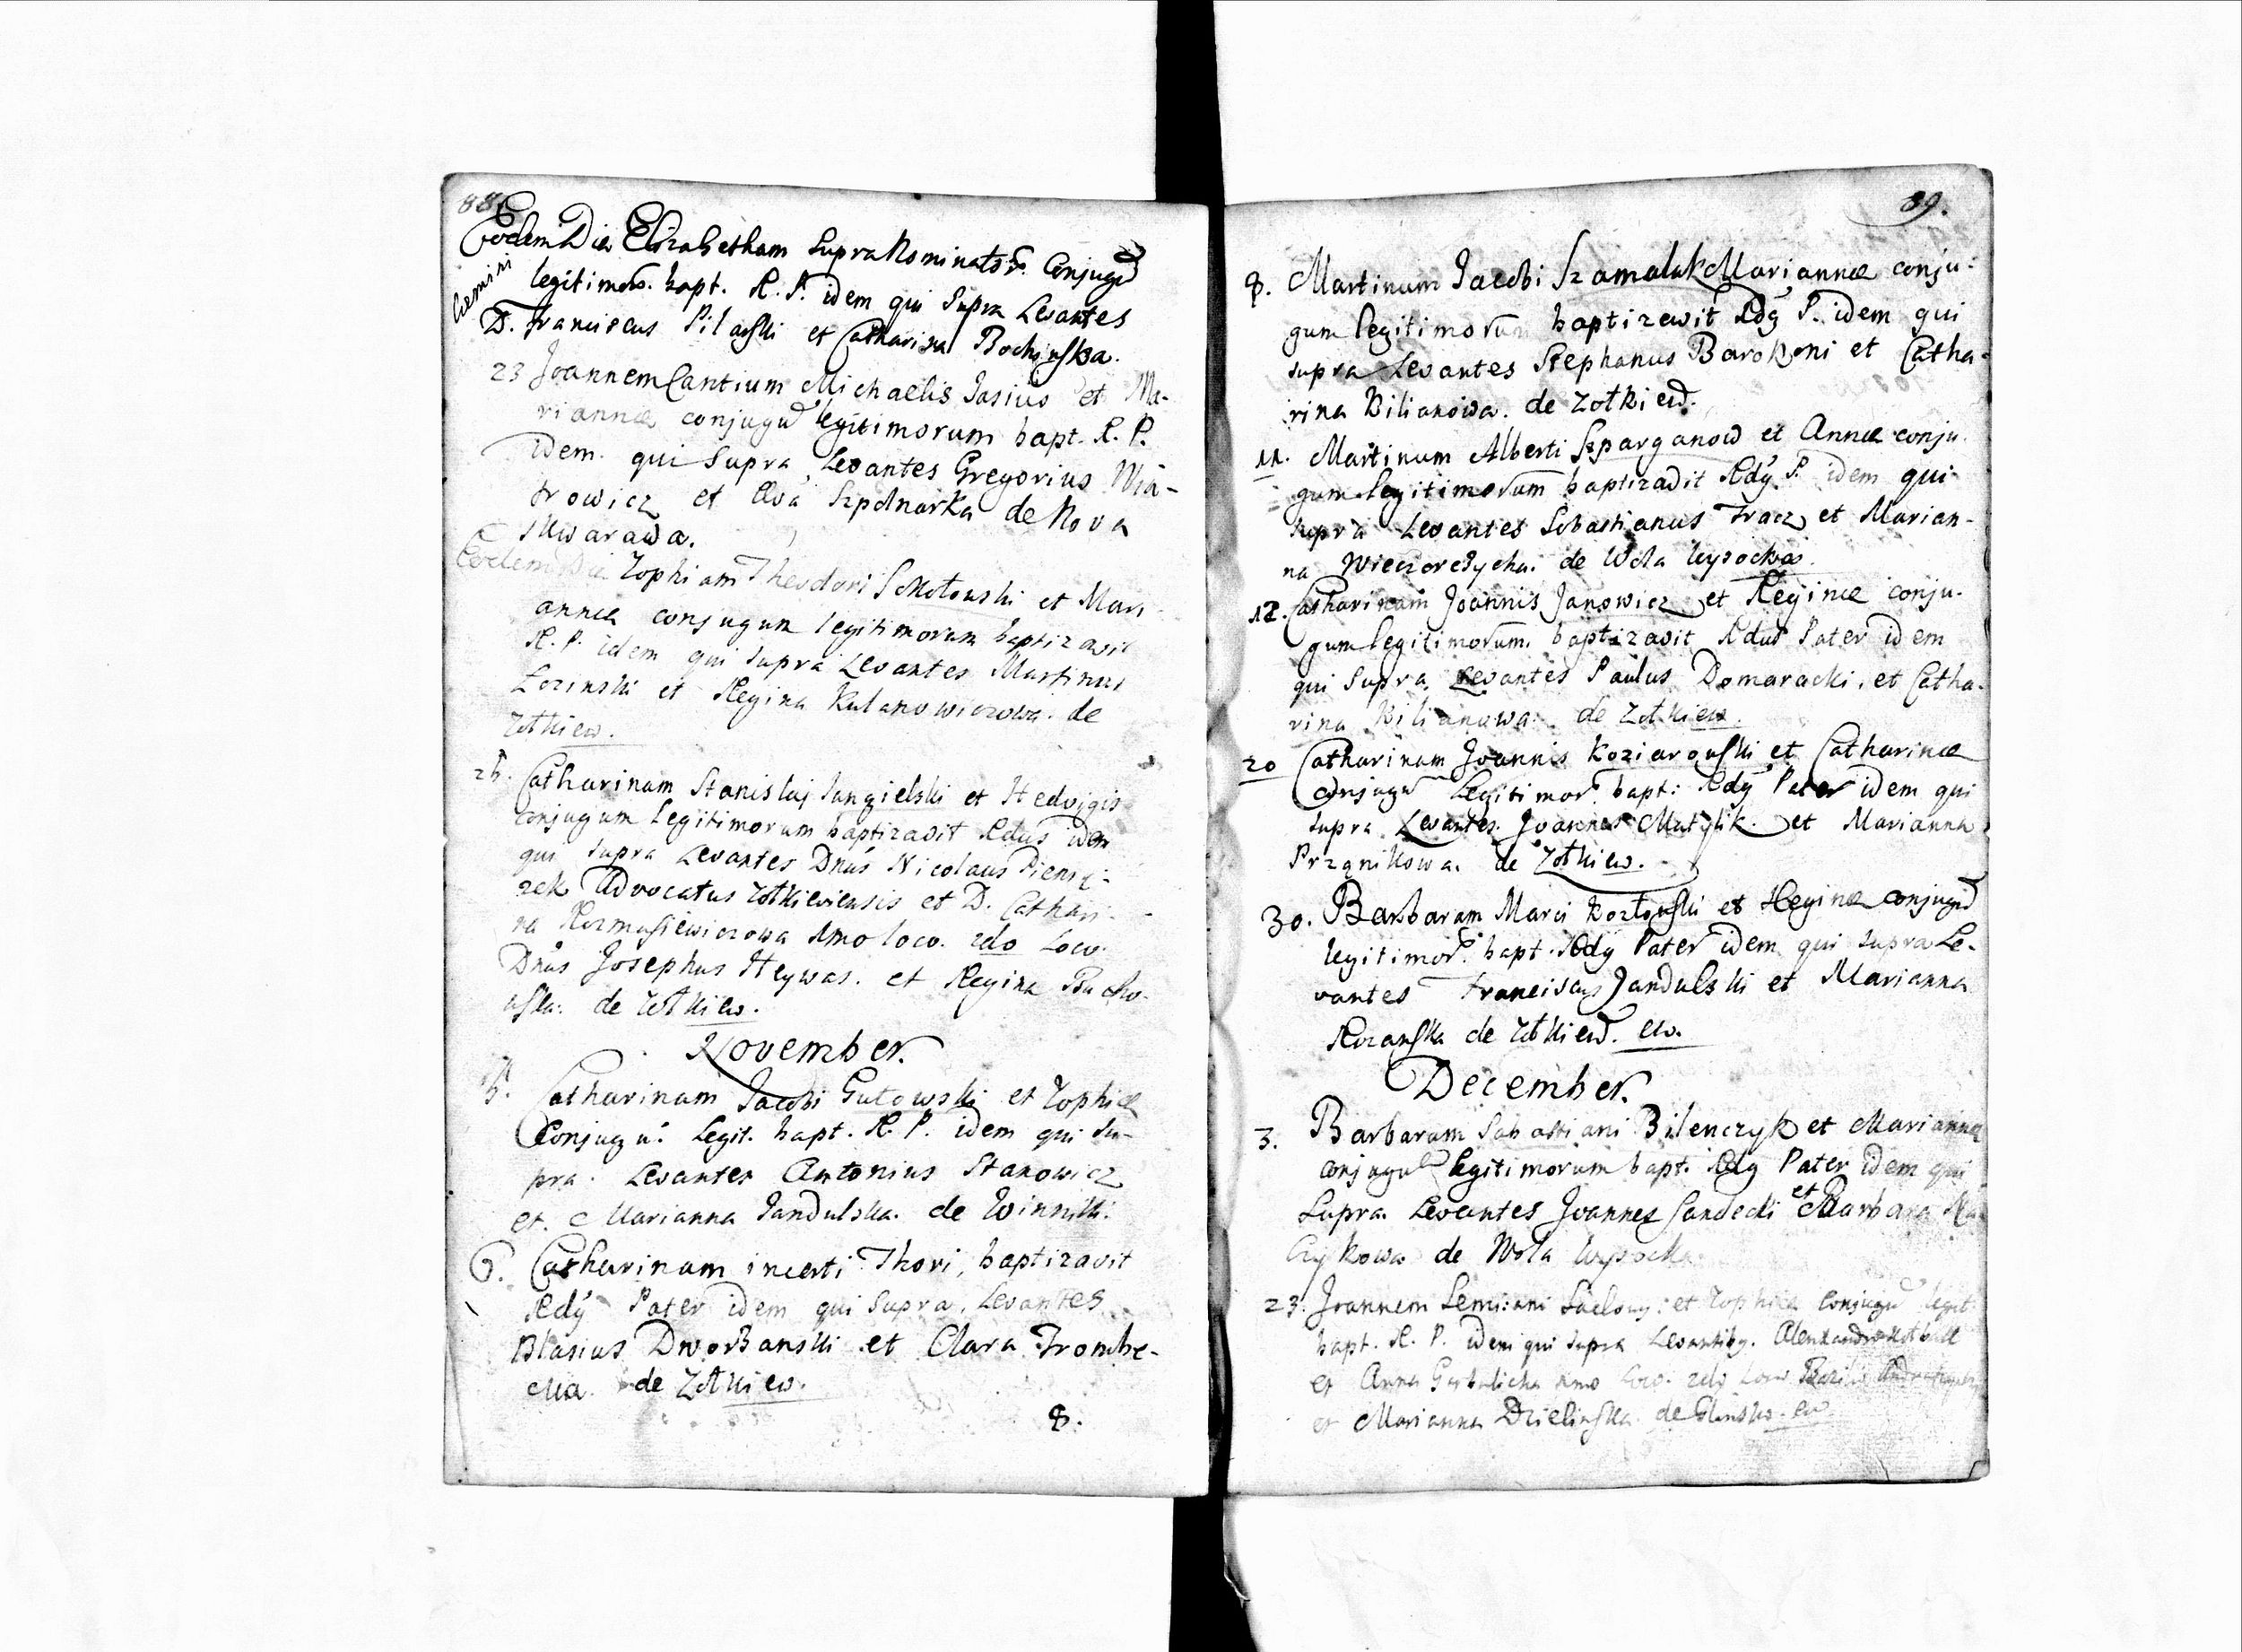 88.
Eodem Die Elizabetham supra Nominator. Conjugu
Gemini
legitimor. bapt. R. P. idem qui supra Levantes
D. Franciscus Pilaski et Catharina Bochinska.
23 Joannem Cantium Michaelis Jasius et Ma-
riannæ conjugu legitimorum bapt. R. P.
idem qui supra, Levantes Gregorius Wia-
trowicz et Eva Szpolnarka de Nova
Skwarawa.
Eodem Die Zophiam Theodori Sokołowski et Mari
annæ conjugum legitimorum baptizavit
R. P. idem qui supra Levantes Martinus
Łozinski et Regina Kulanowiczowa. de
Zołkiew.
Catharinam Stanislai Jangielski et Hedvigis
conjugum Legitimorum baptizavit Rdus idem
qui supra Levantes Dnus Nicolaus Pieni-
zek Advocatus Zołkieviensis et D. Cathari-
na Kozmasiewiczowa 1mo loco. 2do Loco
Dnus Josephus Heywas. et Regina Bucho-
wska. de Zołkiew.
November.
5. Catharinam Jacobi Gutowski et Zophiæ
Conjugu. Legit. bapt. R. P. idem qui su-
pra. Levantes Antonius Stanowicz
et Marianna Jandulska. de Winniki.
6. Catharinam incerti Thori, baptizavit
Rdy Pater idem qui supra, Levantes
Blasius Dworzanski et Clara Trombe-
cka. de Zołkiew.
8.
89.
8. Martinum Jacobi Szamałuk Mariannæ conju-
gum legitimorum baptizavit Rdy P. idem qui
supra Levantes Stephanus Barokoni et Catha-
rina Kilianowa. de Zołkiew.
11. Martinum Alberti Szparganow et Annæ conju-
gum legitimorum baptizavit Rdy P. idem qui
supra Levantes Sebastianus Tracz et Marian-
na de Wola Wysocka.
12. Catharinam Joannis Janowicz et Reginæ conju-
gum legitimorum. baptizavit Rdus Pater idem
qui supra, Levantes Paulus Domaracki, et Catha-
rina Kilianowa. de Zołkiew.
20 Catharinam Joannis Koziarowski et Catharinæ
Conjugu Legitimor. bapt: Rdy Pater idem qui
supra Levantes. Joannes Matylik. et Marianna
Prząnikowa. de Zołkiew.
30. Barbaram Marci Kozłowski et Reginæ conjugu
legitimor. bapt. Rdy Pater idem qui supra Le-
vantes Franciscus Jandulski et Marianna
Rozanska de Zołkiew. ew.
December.
3. Barbaram Sabastiani Bilenczyk et Mariannæ
conjugu legitimorum bapt. Rdy Pater idem qui
Supra. Levantes Joannes Sandecki et Barbara
czykowa de Wola Wysocka
23. Joannem et Zophiæ Conjugu legit.
bapt. R. P. idem qui supra Levantiby.
et Anna 1mo Loco. 2do Loco
et Marianna Dzielinska. de Glinsko. ew.